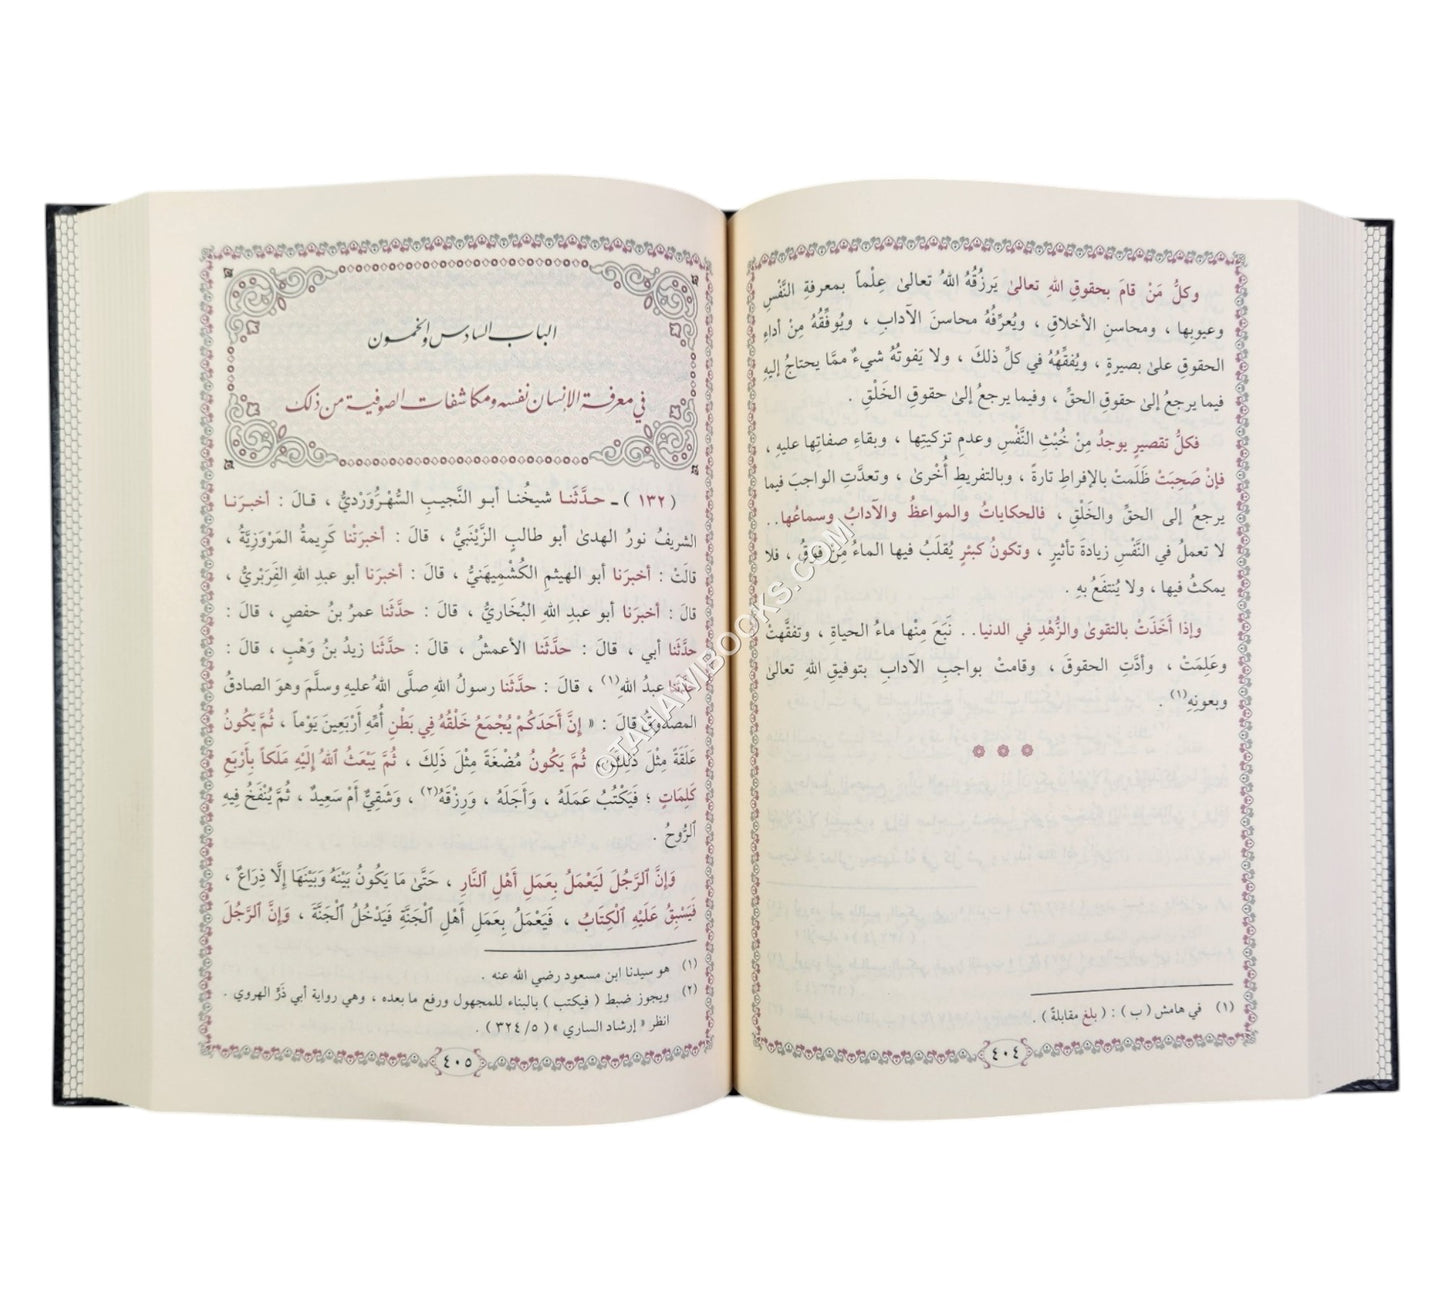 وكلُّ مَنْ قامَ بحقوقِ اللهِ تعالىٰ يَرزُقُهُ اللهُ تعالىٰ عِلْماً بمعرفةِ النَّفْسِ
وعيوبِها ، ومحاسنِ الأخلاقِ ، ويُعرِّفُهُ محاسنَ الآدابِ ، ويُوفِّقُهُ مِنْ أداءِ
الحقوقِ علىٰ بصيرةٍ ، ويُفقِّهُهُ في كلِّ ذلكَ ، ولا يَفوتُهُ شيءٌ ممَّا يحتاجُ إليهِ
فيما يرجعُ إلىٰ حقوقِ الحقِّ ، وفيما يرجعُ إلىٰ حقوقِ الخَلْقِ .
فكلُّ تقصيرٍ يوجدُ مِنْ خُبْثِ النَّفْسِ وعدمِ تزكيتِها ، وبقاءِ صفاتِها عليهِ ،
فإنْ صَحِبَتْ ظَلَمَتْ بالإفراطِ تارةً ، وبالتفريطِ أُخْرىٰ ، وتعدَّتِ الواجبَ فيما
يرجعُ إلى الحقِّ والخَلْقِ ، فالحكاياتُ والمواعظُ والآدابُ وسماعُها..
لا تعملُ في النَّفْسِ زيادةَ تأثيرٍ ، وتكونُ كبئرٍ يُقلَبُ فيها الماءُ مِنْ فوقُ ، فلا
يمكثُ فيها ، ولا يُنتفَعُ بهِ .
وإذا أَخَذَتْ بالتقوىٰ والزُّهْدِ في الدنيا.. نَبَعَ مِنْها ماءُ الحياةِ ، وتفقَّهتْ
وعَلِمَتْ ، وأدَّتِ الحقوقَ ، وقامتْ بواجبِ الآدابِ بتوفيقِ اللهِ تعالىٰ
وبعونِهِ(١) .
(١) في هامش ( ب ) : ( بلغ مقابلةً ) .
٤٠٤
الباب السادس والخمسون
في معرفة الإنسان نفسه ومكاشفات الصوفية من ذلك
( ١٣٢ ) ـ حدَّثَنا شيخُنا أبو النَّجيبِ السُّهْرَوَرْديُّ ، قالَ : أخبرَنا
الشريفُ نورُ الهدىٰ أبو طالبٍ الزَّيْنَبيُّ ، قالَ : أخبرَتْنا كَرِيمةُ المَرْوَزِيَّةُ ،
قالَتْ : أخبرَنا أبو الهيثمِ الكُشْمِيهَنيُّ ، قالَ : أخبرَنا أبو عبدِ اللهِ الفَرَبْريُّ ،
قالَ : أخبرَنا أبو عبدِ اللهِ البُخَاريُّ ، قالَ : حدَّثَنا عمرُ بنُ حفصٍ ، قالَ :
حدَّثَنا أبي ، قالَ : حدَّثَنا الأعمشُ ، قالَ : حدَّثَنا زيدُ بنُ وَهْبٍ ، قالَ :
حدَّثَنا عبدُ اللهِ(١) ، قالَ : حدَّثَنا رسولُ اللهِ صلَّى اللهُ عليهِ وسلَّمَ وهوَ الصادقُ
المصدوقُ قالَ : « إِنَّ أَحَدَكُمْ يُجْمَعُ خَلْقُهُ فِي بَطْنِ أُمِّهِ أَرْبَعِينَ يَوْماً ، ثُمَّ يَكُونُ
عَلَقَةً مِثْلَ ذَلِكَ ، ثُمَّ يَكُونُ مُضْغَةً مِثْلَ ذَلِكَ ، ثُمَّ يَبْعَثُ ٱللهُ إِلَيْهِ مَلَكاً بِأَرْبَعِ
كَلِمَاتٍ ؛ فَيَكْتُبُ عَمَلَهُ ، وَأَجَلَهُ ، وَرِزْقَهُ(٢) ، وَشَقِيٌّ أَمْ سَعِيدٌ ، ثُمَّ يُنْفَخُ فِيهِ
ٱلرُّوحُ .
وَإِنَّ ٱلرَّجُلَ لَيَعْمَلُ بِعَمَلِ أَهْلِ ٱلنَّارِ ، حَتَّىٰ مَا يَكُونُ بَيْنَهُ وَبَيْنَهَا إِلَّا ذِرَاعٌ ،
فَيَسْبِقُ عَلَيْهِ ٱلْكِتَابُ ، فَيَعْمَلُ بِعَمَلِ أَهْلِ ٱلْجَنَّةِ فَيَدْخُلُ ٱلْجَنَّةَ ، وَإِنَّ ٱلرَّجُلَ
(١) هو سيدنا ابن مسعود رضي الله عنه .
(٢) ويجوز ضبط ( فيكتب ) بالبناء للمجهول ورفع ما بعده ، وهي رواية أبي ذَرٍّ الهروي .
انظر « إرشاد الساري » ( ٣٢٤/٥ ) .
٤٠٥
©TAHAMIBOOKS.COM